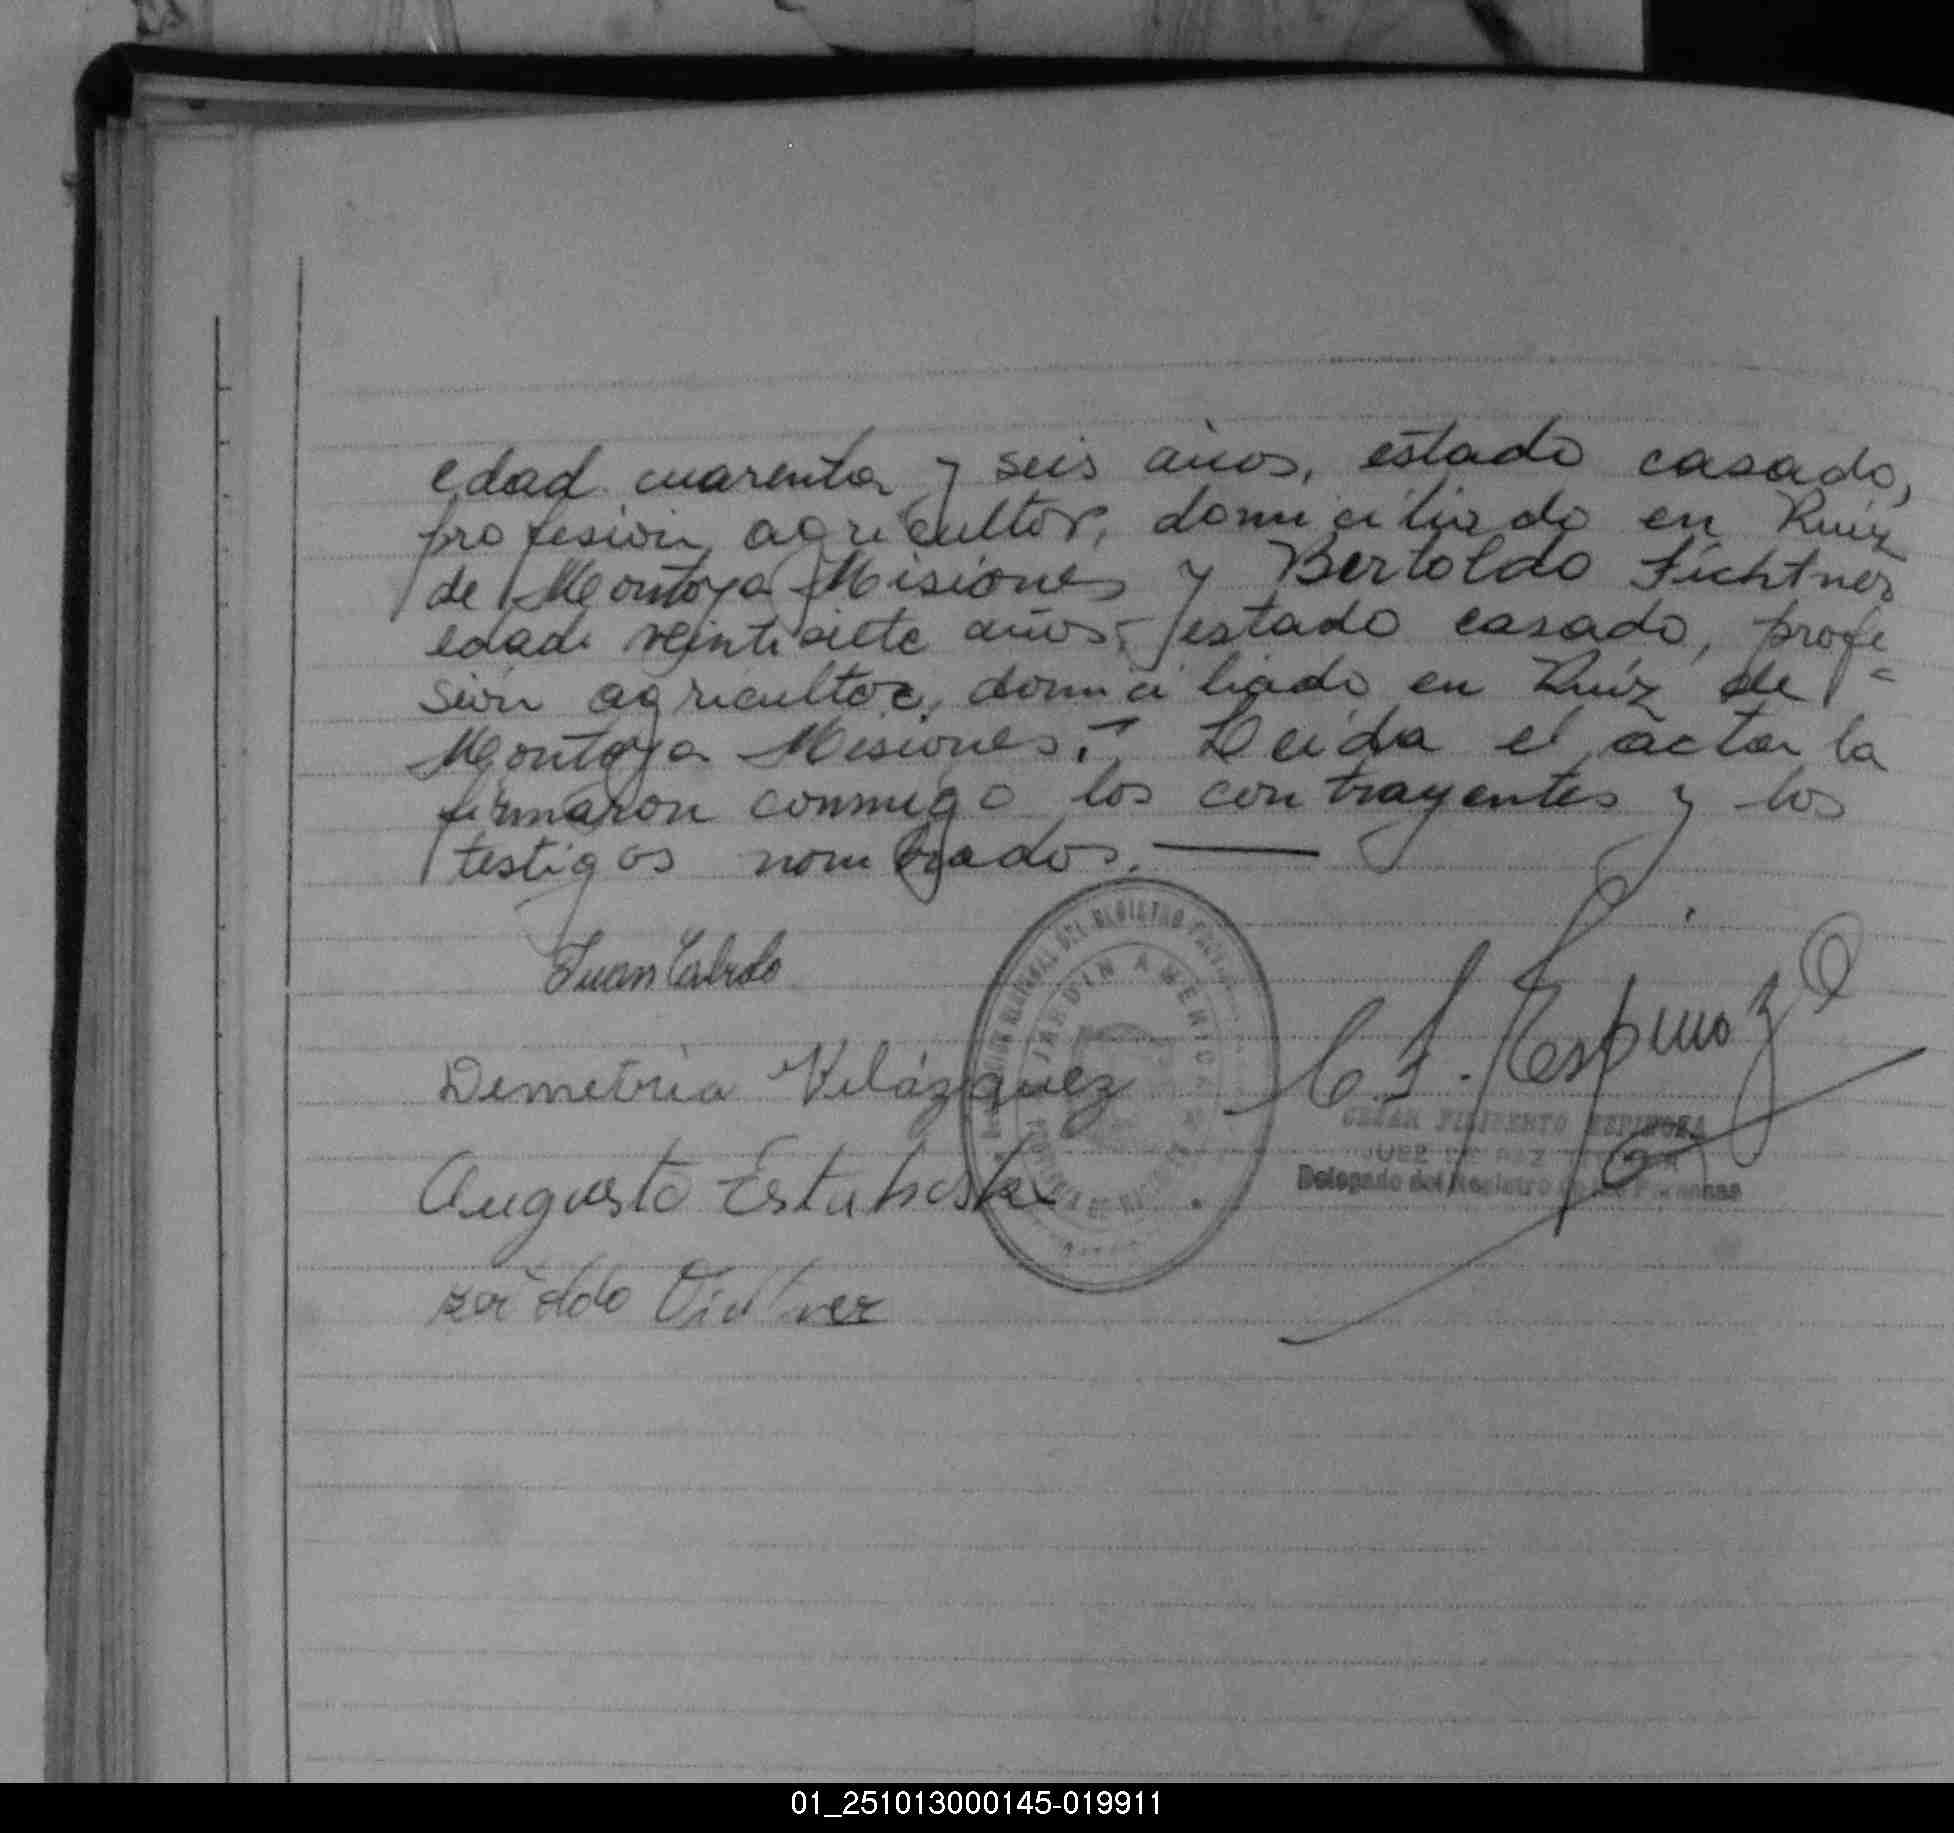 edad cuarenta y seis años, estado casado,
profesión agricultor, domiciliado en Ruiz
de Montoya Misiones y Bertoldo Fichtner
edad veintisiete años, estado casado, profe=
sión agricultor, domiciliado en Ruíz de
Montoya Misiones.- Leída el acta la
firmaron conmigo los contrayentes y los
testigos nombrados.
Juan
Demetria Velázquez
Augusto
C F. Espinoza
JARDIN AMERICA
CESAR FILIBERTO ESPINOZA
JUEZ DE PAZ
Delegado del Registro de las Personas
01_251013000145-019911